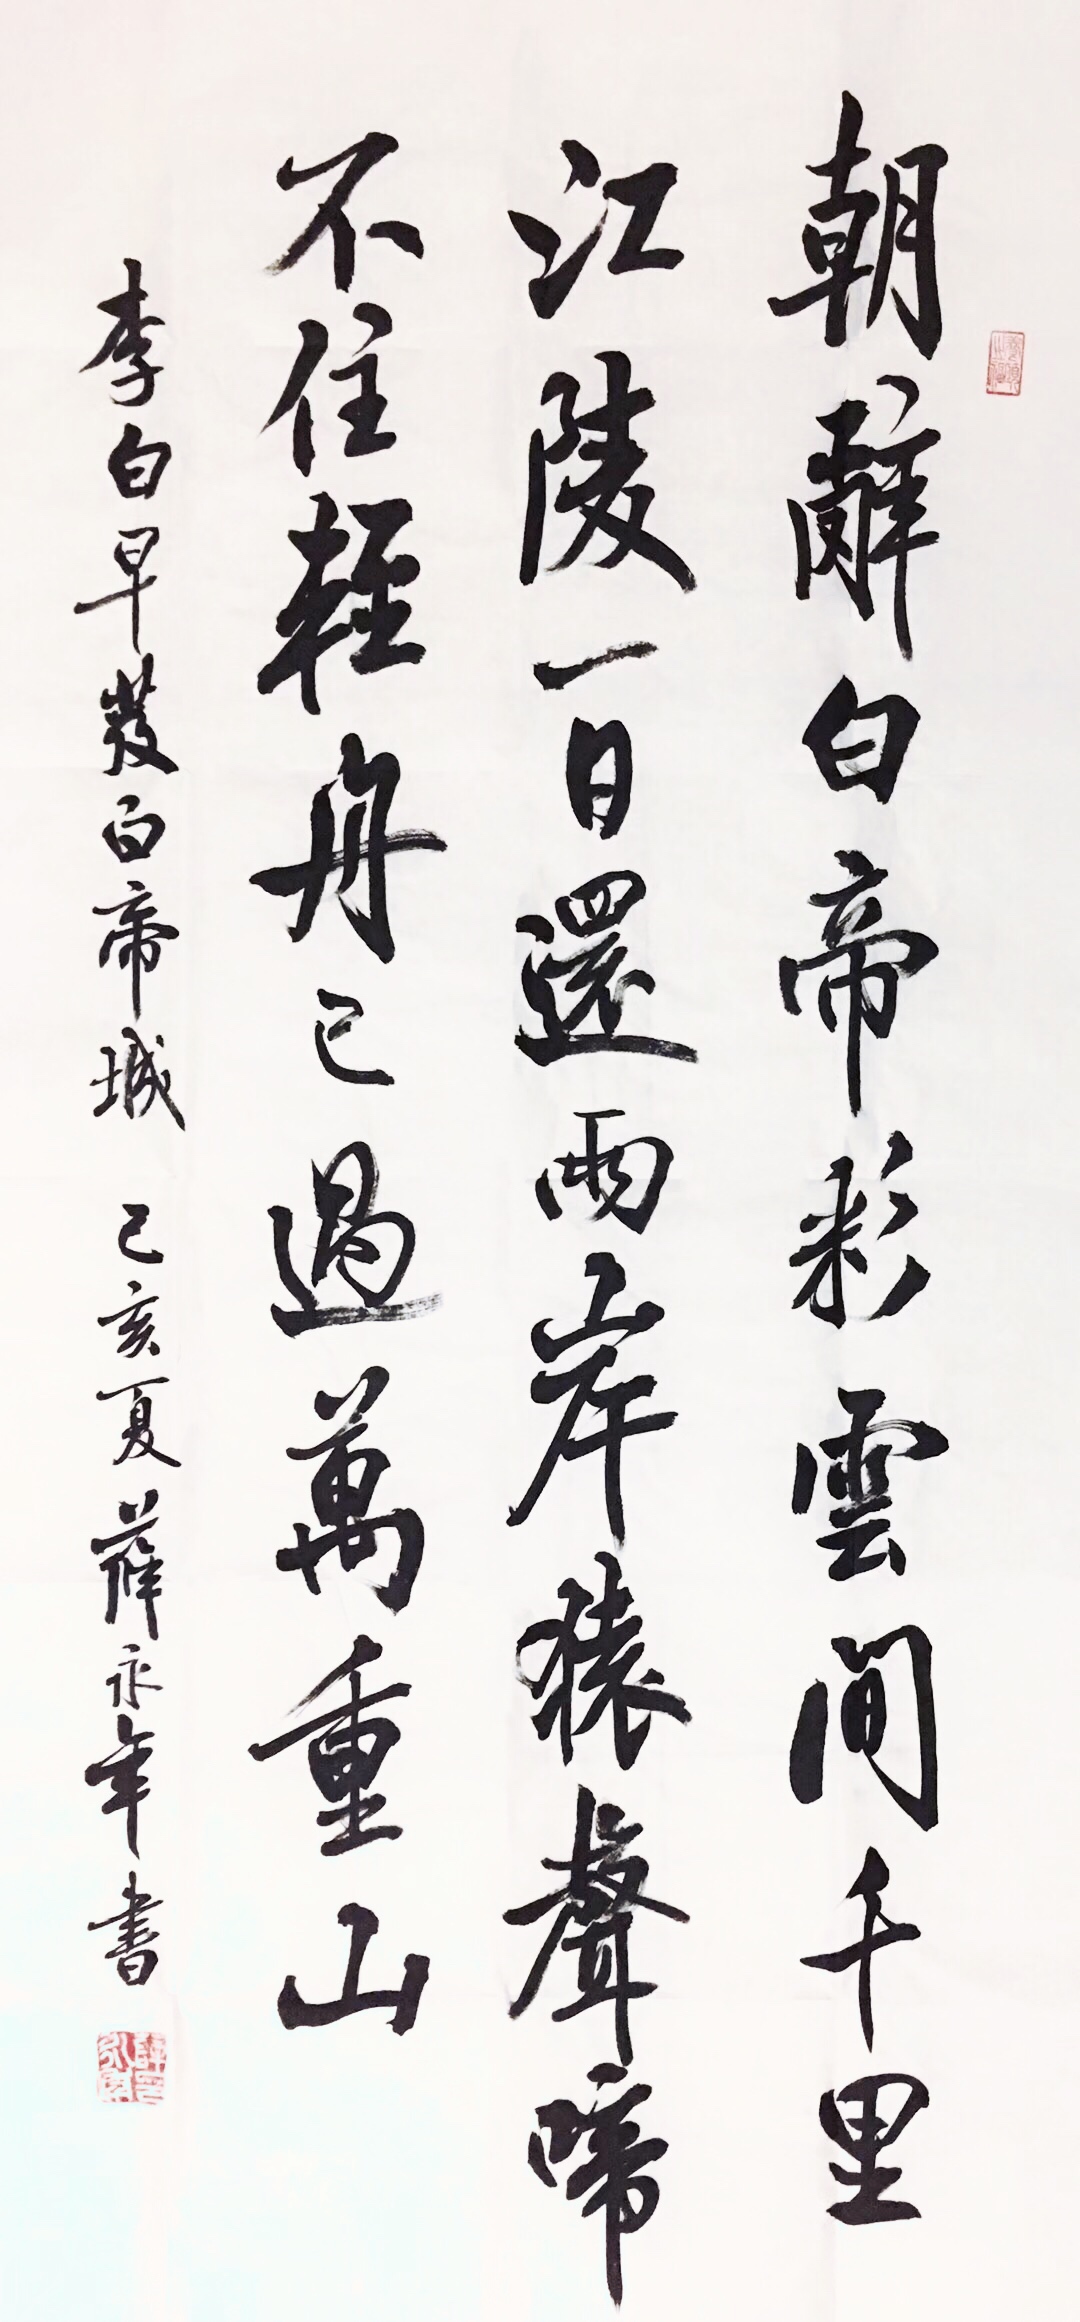 朝辭白帝彩雲間千里
江陵一日還兩岸猿聲啼
不住輕舟已過萬重山
李白早發白帝城 己亥夏 薛永年書